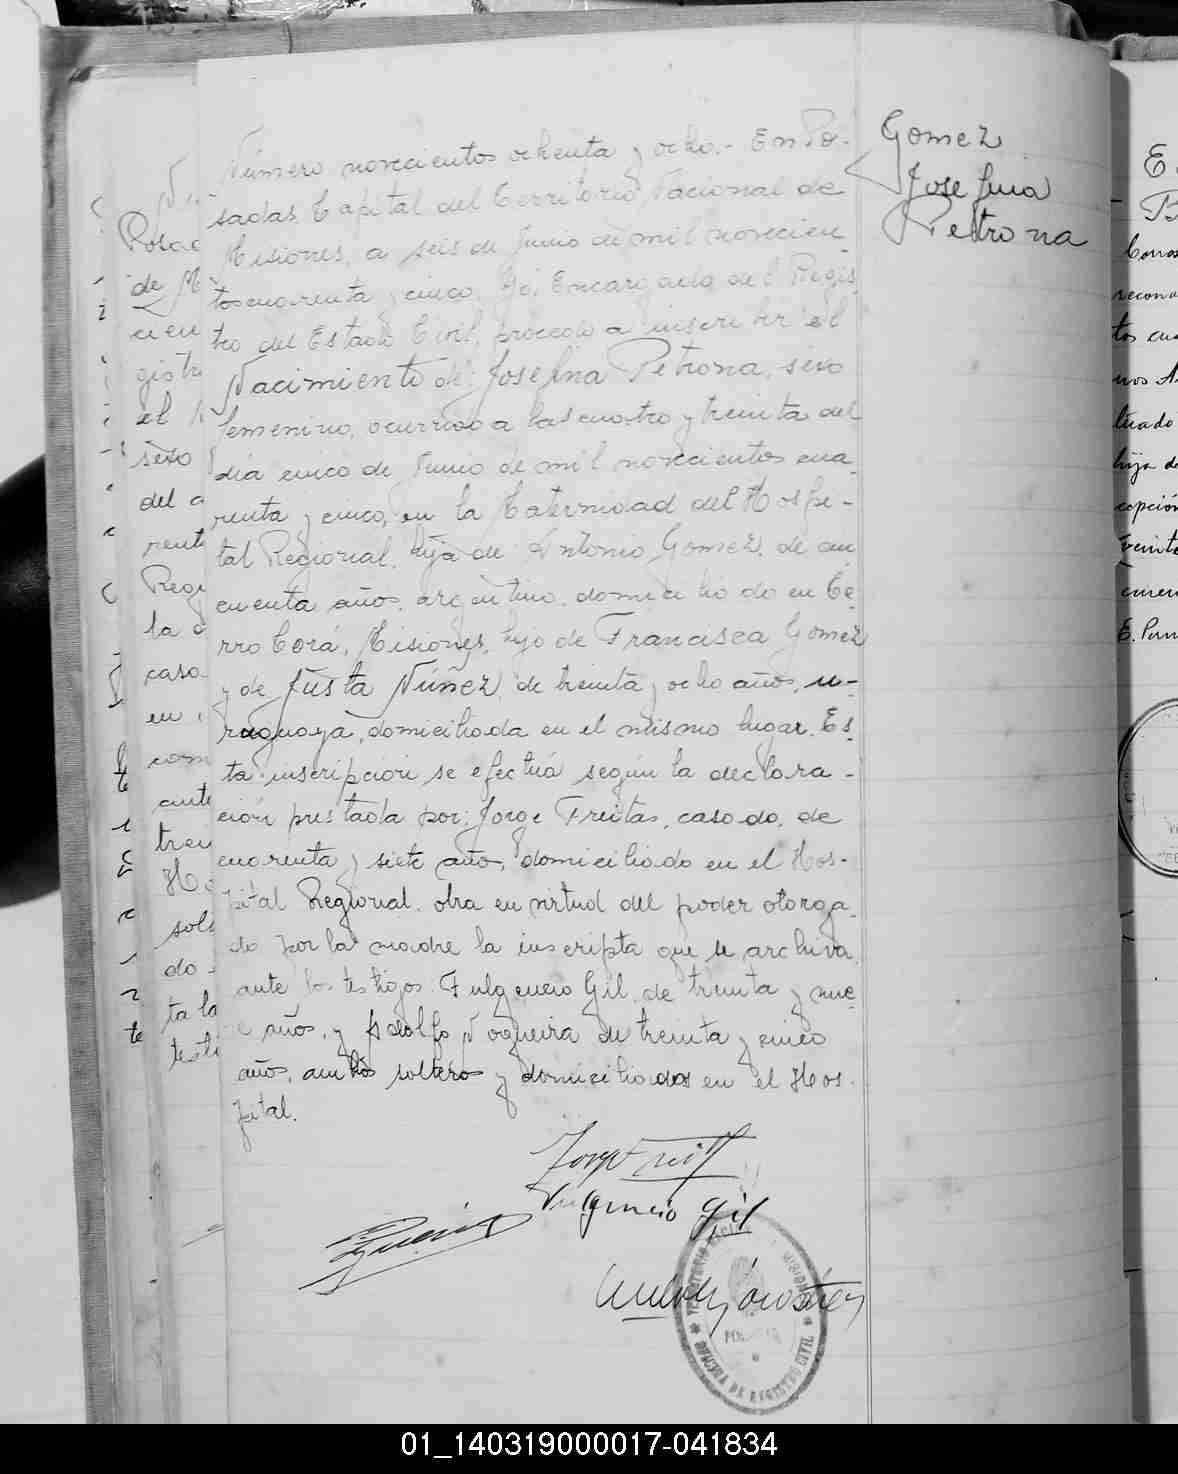 Gomez
Josefina
Petrona
Número novecientos ochenta y ocho.- En Po-
sadas, Capital del Territorio Nacional de
Misiones, a seis de Junio de mil novecien
tos cuarenta y cinco. Yo, Encargado del Regis
tro del Estado Civil, procedo a inscribir el
Nacimiento de: Josefina Petrona, sexo
femenino, ocurrido a las cuatro y treinta del
día cinco de Junio de mil novecientos cua
renta y cinco, en la Maternidad del Hospi-
tal Regional, hija de: Antonio Gomez, de cin
cuenta años, argentino, domiciliado en Ce
rro Corá, Misiones, hijo de Francisca Gomez
y de Justa Núñez, de treinta y ocho años, u-
ruguaya, domiciliada en el mismo lugar. Es
ta inscripción se efectúa según la declara-
ción prestada por: Jorge Freitas, casado, de
cuarenta y siete años, domiciliado en el Hos-
pital Regional, obra en virtud del poder otorga
do por la madre la inscripta que se archiva,
ante los testigos: Fulgencio Gil, de treinta y nue
e años, y Adolfo Nogueira de treinta y cinco
años, ambos solteros y domiciliados en el Hos-
pital.
Fulgencio Gil
TERRITORIO NACIONAL MISIONES
OFICINA DE REGISTRO CIVIL
Posad
de M
cien
gistr
el
sexo
del
renta
Regi
la
caso
en
com
ante
trein
Ho
solt
do
ta la
testi
recon
tos cua
tuado
hija de
cepción
treinta
01_140319000017-041834